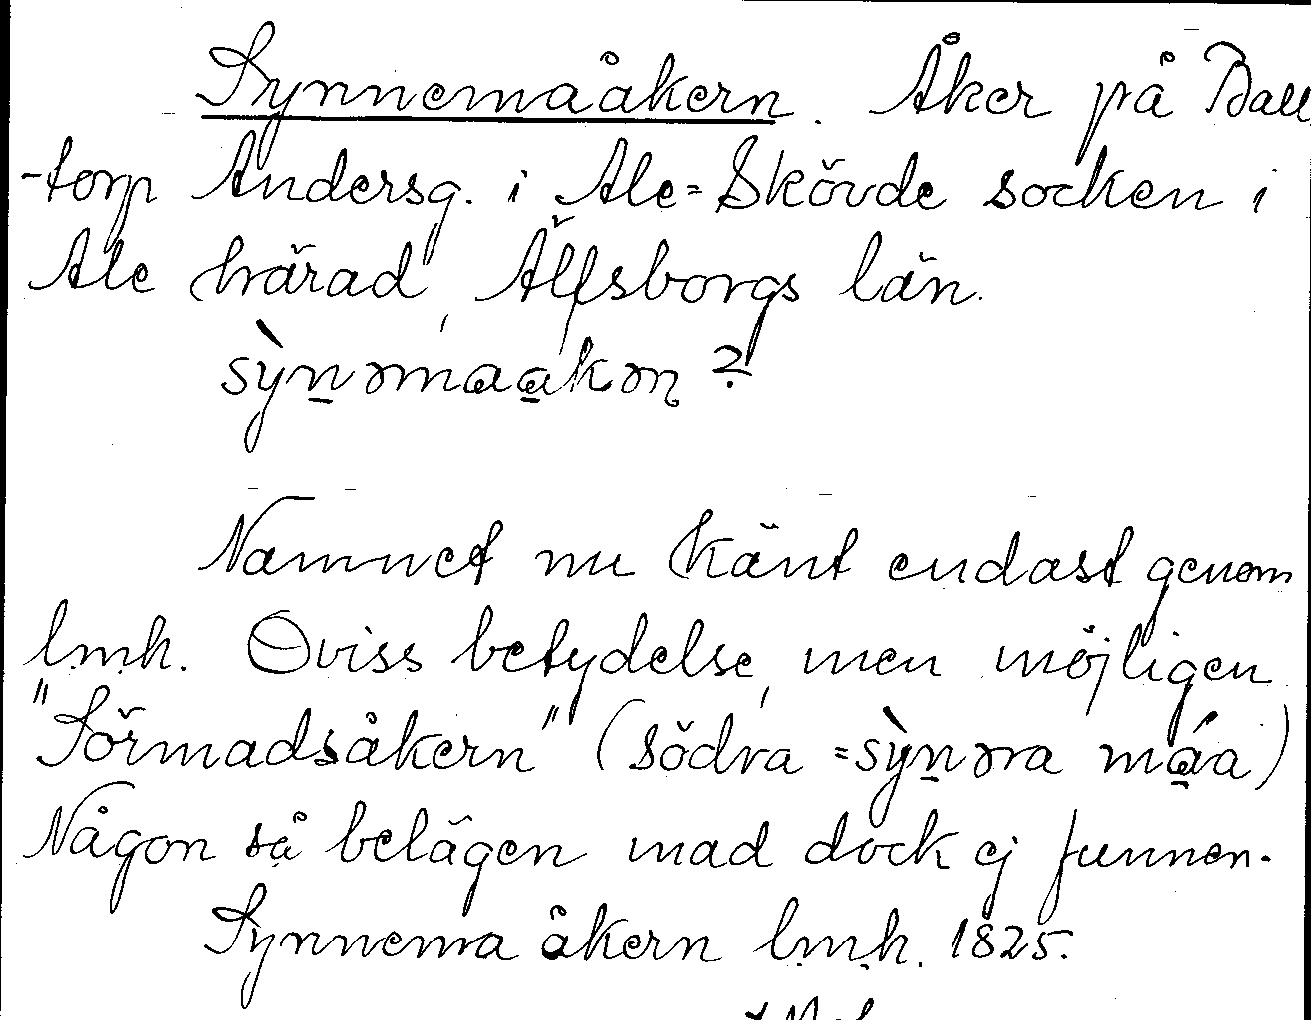 Synnemaåkern. Åker på Ball
-torp Andersg. i Ale-Skövde socken i
Ale härad, Älfsborgs län.
sỳn̲əmaa̲kən?
Namnet nu känt endast genom
l.m.h. Oviss betydelse, men möjligen
"Sörmadsåkern" (södra = sỳn̲əra má̲a)
Någon så belägen mad dock ej funnen.
Synnema åkern l.m.h. 1825.